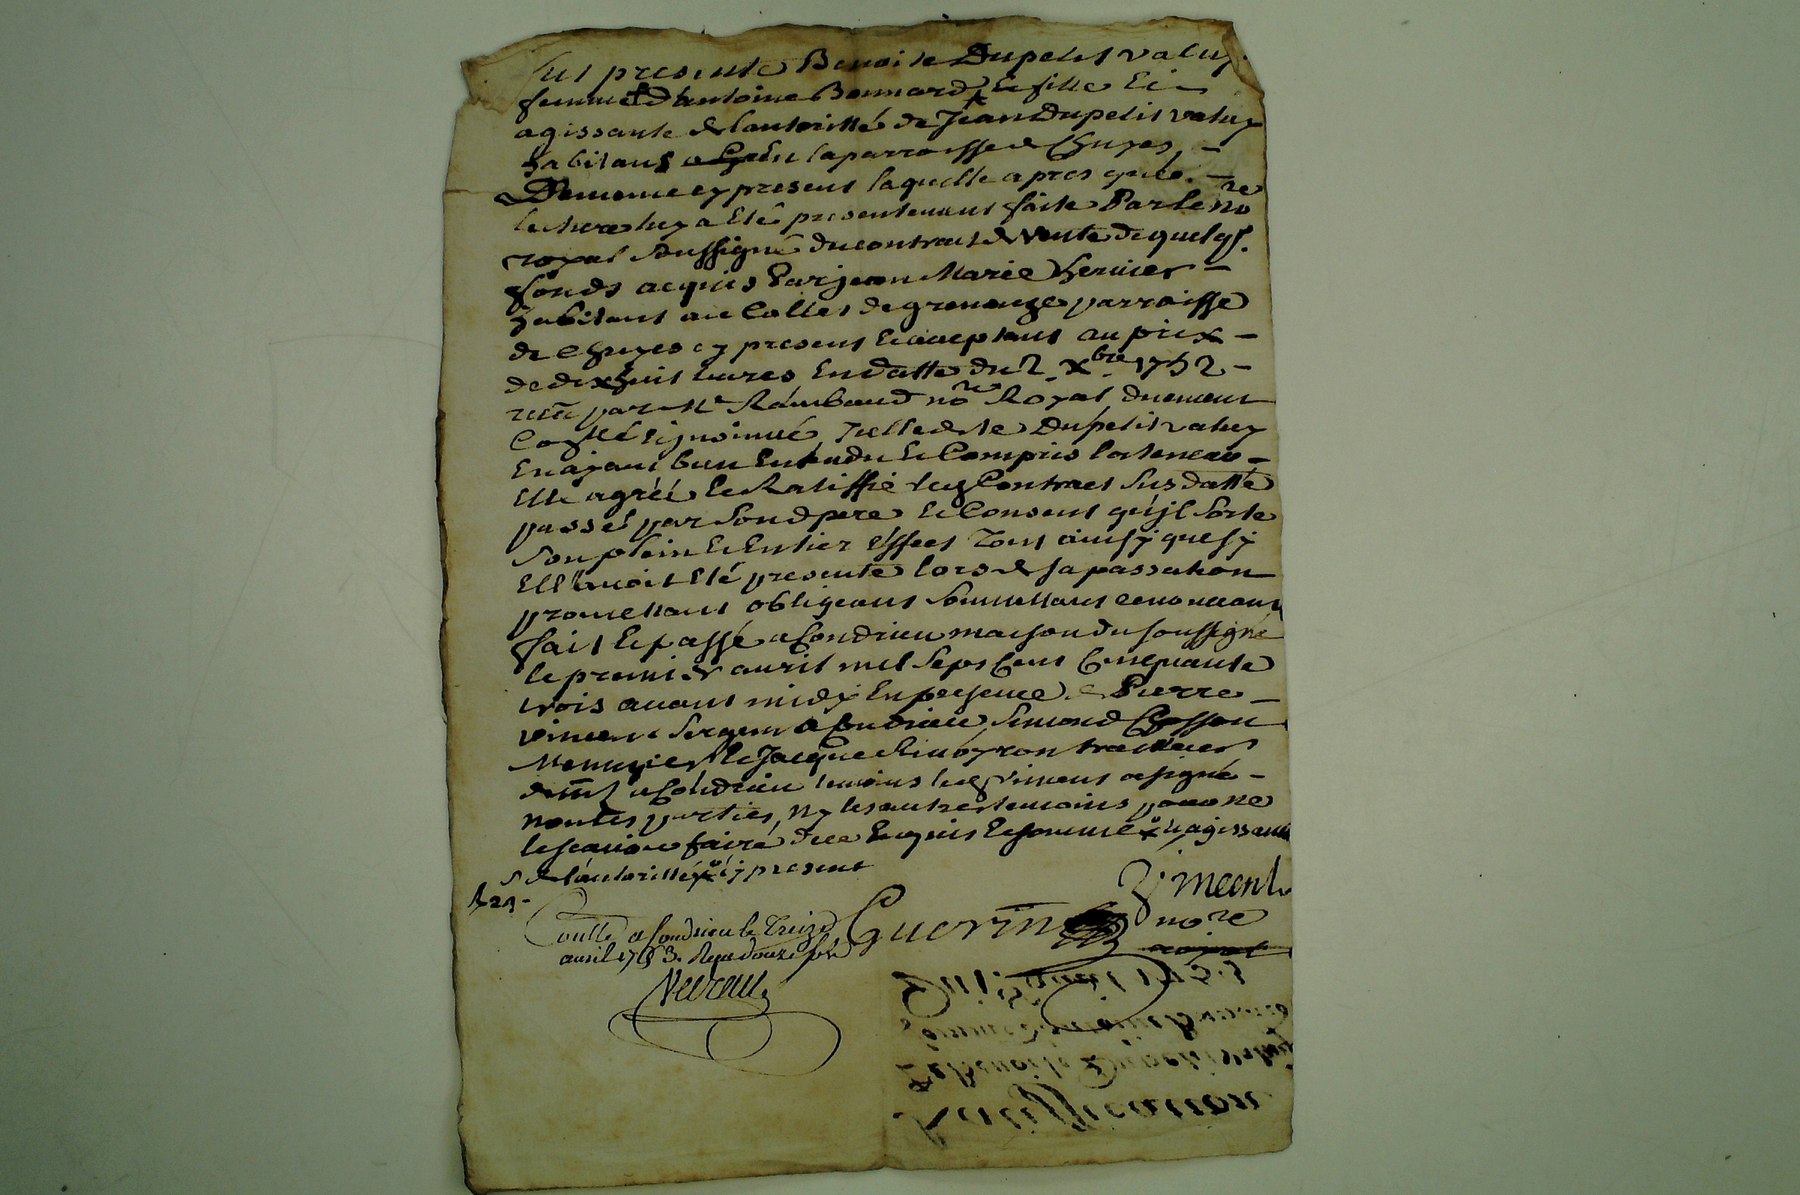 fut presente Benoite Dupetit valuy
femme d'antoine Bonnard & fille Et
agissante de l'autoritté de Jean Dupetit valuy
habitans en la parroisse de Chuyes, -
Demeure cy present laquelle apres que -
lecture luy a Eté presentement faite Par le nore
royal soussigné du contract de Vente de quelqs.
fonds acquis Par jean Marie Hervier -
habitant au Collet de grenouze parroisse
de Chuyes cy present Et acceptant au prix -
de dixhuit livres En datte du 2. Xbre 1752 -
par Me Raimbaud nore Royal, duement
Icelle Dupetit valuy
En ayant bien Entendu Et Compris la teneur -
Elle agréé Et Ratiffié led Contract Susdatté
passé par Sond pere Et Consent qu'jl sorte
son plein Et Entier Effect Tout ainsy que sy
Ell' avoit Eté presente lors de sa passation
promettant obligeant soumettant renonceant
fait Et passé a Condrieu maison du soussigné
le premier avril mil sept Cent Cinquante
trois avant midy En presence de Pierre -
vincent sergent a Condrieu, Simond Chosson
Et Jacque
a Condrieu temoins led Vincent a signé -
non les parties, ny les autres temoins pour ne
le scavoir faire de ce Enquis Et sommé x Et agissante
de l'autoritté x cy present
Vincent
Guerin nore
royal
Conllé a Condrieu le Treize
avril 1753. Reçu douze sols
Ratiffication
De Benoite Dupetit Valuy
femme d'antoine Bonnard
Du 1er avril 1753